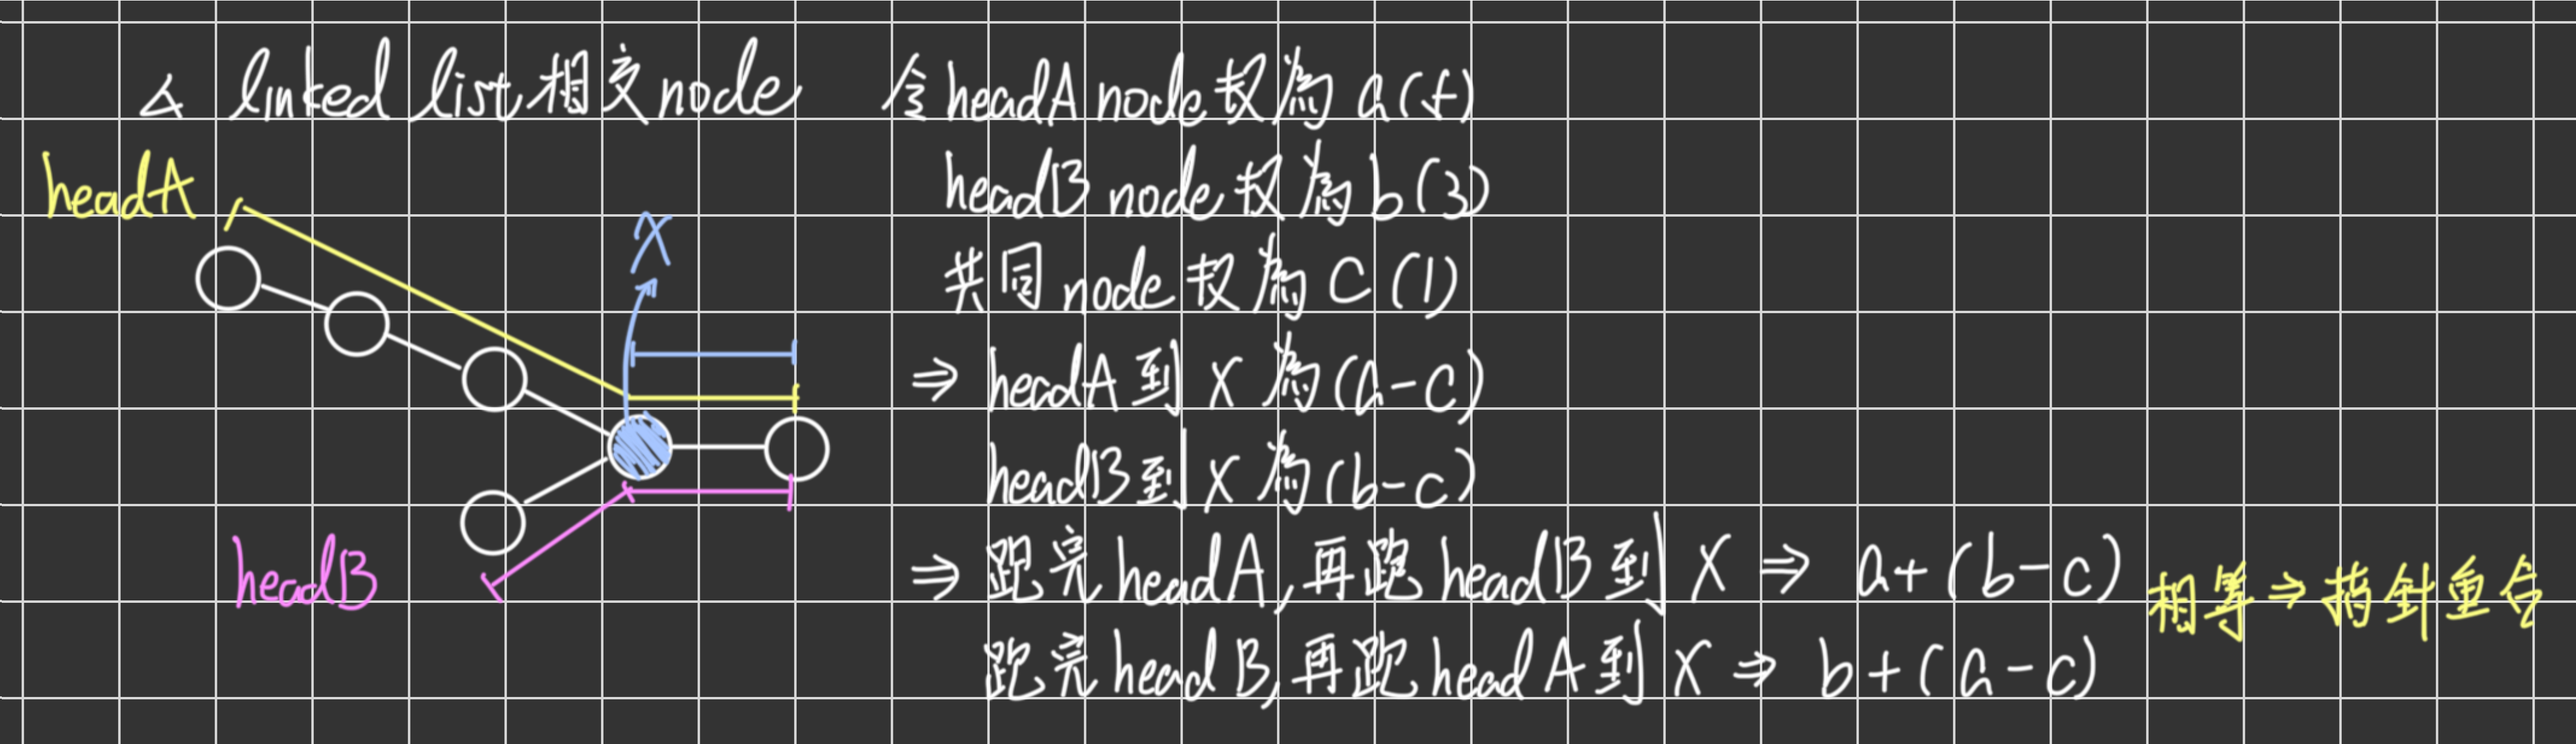 △ linked list 相交 node
headA
X
headB
令 headA node 权為 a(5)
headB node 权為 b(3)
共同 node 权為 C(1)
⇒ headA 到 X 為 (a-c)
headB 到 X 為 (b-c)
⇒ 跑完 headA, 再跑 headB 到 X ⇒ a+(b-c)
跑完 head B, 再跑 headA 到 X ⇒ b+(a-c)
相等 ⇒ 指針重合